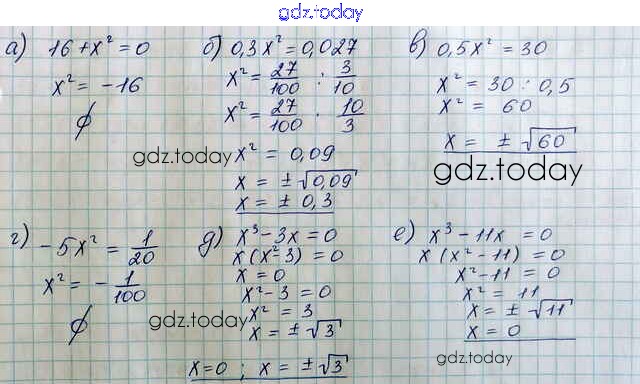 gdz.today
а) 16 + x² = 0
x² = -16
∅
б) 0,3x² = 0,027
x² = 27/100 : 3/10
x² = 27/100 · 10/3
gdz.today
x² = 0,09
x = ±√0,09
x = ± 0,3
в) 0,5x² = 30
x² = 30 : 0,5
x² = 60
x = ± √60
gdz.today
г) -5x² = 1/20
x² = - 1/100
∅
д) x³ - 3x = 0
x(x² - 3) = 0
x = 0
x² - 3 = 0
x² = 3
gdz.today
x = ±√3
x = 0 ; x = ±√3
е) x³ - 11x = 0
x(x² - 11) = 0
x² - 11 = 0
x² = 11
x = ± √11
x = 0
gdz.today